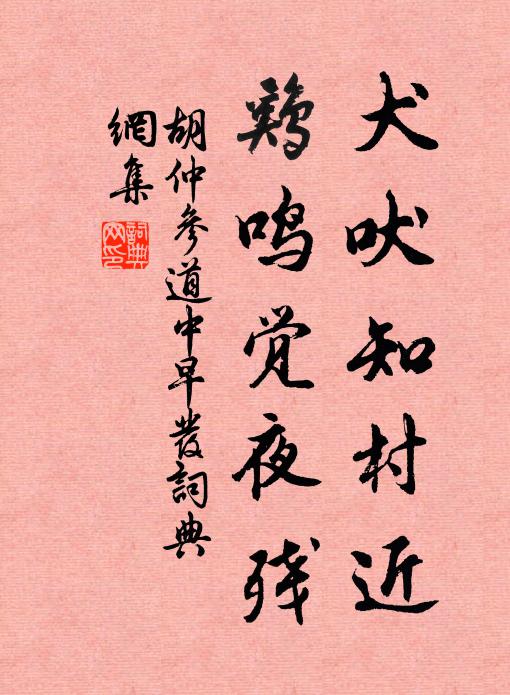 犬吠知村近
鸡鸣觉夜残
胡仲参道中早發詞典
網集
詞典
网印